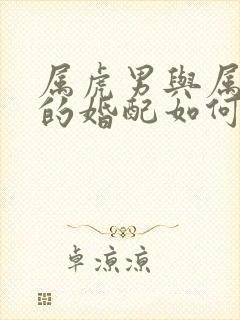 属虎男與属
的婚配如何
卓凉凉